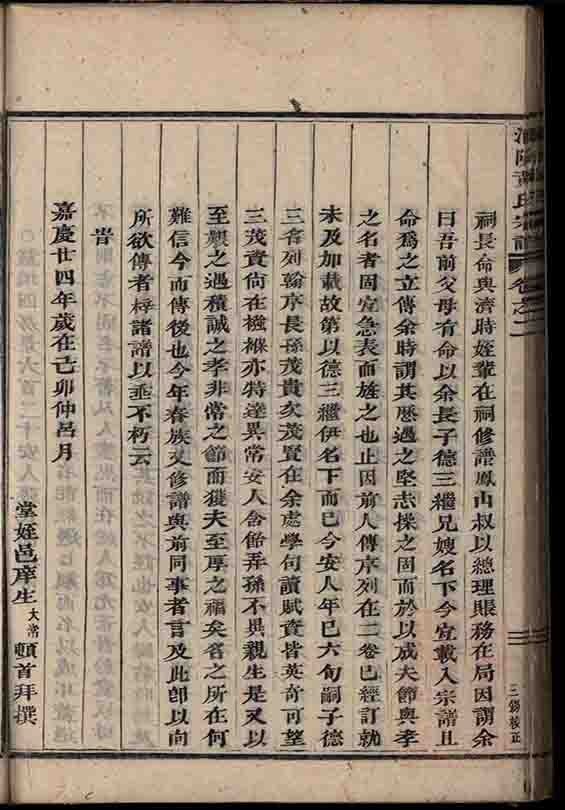 祠長命與濟時姪輩在祠修譜鳳山叔以總理賬務在局因謂余
曰吾前父母有命以余長子德三繼兄嫂名下今宜載入宗譜且
命爲之立傳余時謂其歷過之堅志操之固而於以成夫節與孝
之名者固宜急表而旌之也止因前人傳序列在二卷已經訂就
未及加載故第以德三繼伊名下而已今安人年已六旬嗣子德
三名列翰序長孫茂貴矣茂賢在余處學句讀賦資皆英奇可望
三茂資尙在襁褓亦特達異常安人含飴弄孫不異親生是又以
至艱之遇積誠之孝非常之節而獲夫至厚之福矣名之所在何
難信今而傳後也今年春族又修譜與前同事者言及此卽以向
所欲傳者梓諸譜以垂不朽云
旹
嘉慶廿四年歲在己卯仲呂月
堂姪邑庠生大常頓首拜撰
氏宗譜 卷之二
三錫校正